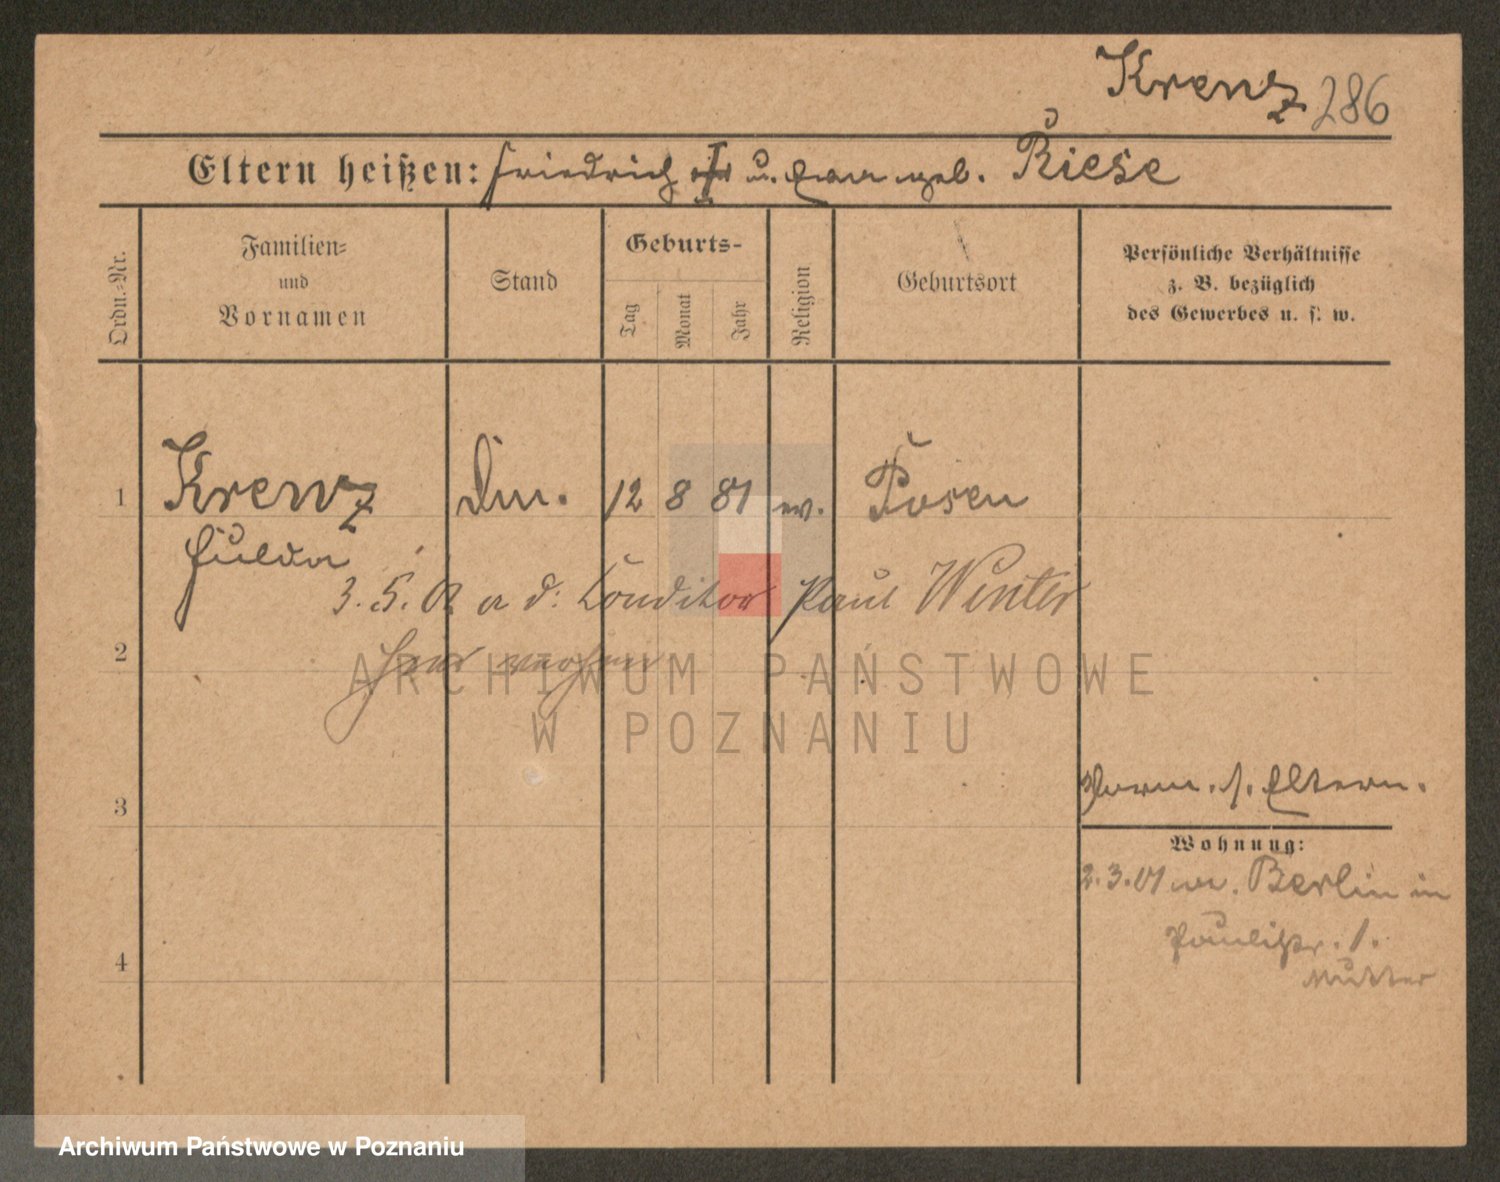 Krenz 286
Eltern heißen: Friedrich u. Eva geb. Riese
Ordn.-Nr.
Familien-
und
Vornamen
Stand
Geburts-
Tag
Monat
Jahr
Religion
Geburtsort
Persönliche Verhältnisse
z. B. bezüglich
des Gewerbes u. s. w.
1 Krenz 12 8 81 ev. Posen
Hulda
3.5. a d: Conditor Paul Winter
2
ARCHIWUM PAŃSTWOWE
W POZNANIU
3
Vorm. s. Eltern.
Wohnung:
2.3.01 Berlin in
Paulistr. 1.
Mutter
4
Archiwum Państwowe w Poznaniu